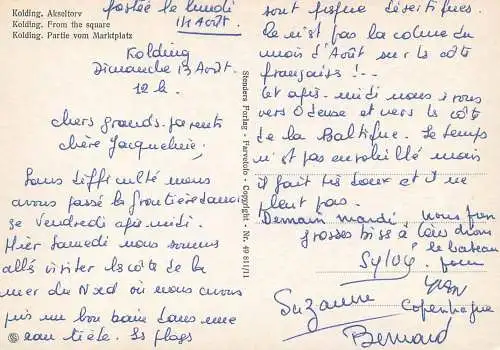 Kolding. Akseltorv
Kolding. From the square
Kolding. Partie vom Marktplatz
postée le lundi
14 Août.
Kolding
Dimanche 13 Août.
12 h.
chers grands-parents
chère Jacqueline,
Sans difficulté nous
avons passé la frontière danoi
se Vendredi après midi.
Hier Samedi nous sommes
allés visiter les côtes de la
mer du Nord où nous avons
pris un bon bain dans une
eau tiède. Les plages
Stenders Forlag - Farvefoto - Copyright - Nr. 49 811/11
sont presque désertiques.
Ce n'est pas la cohue du
mois d'Août sur la côte
française !--
Cet après-midi nous irons
vers Odense et vers la côte
de la Baltique. Le temps
n'est pas ensoleillé mais
il fait très doux et il ne
pleut pas.
Demain mardi nous
grosses bises à tous
le bateau
pour
Copenhague
Suzanne
Bernard